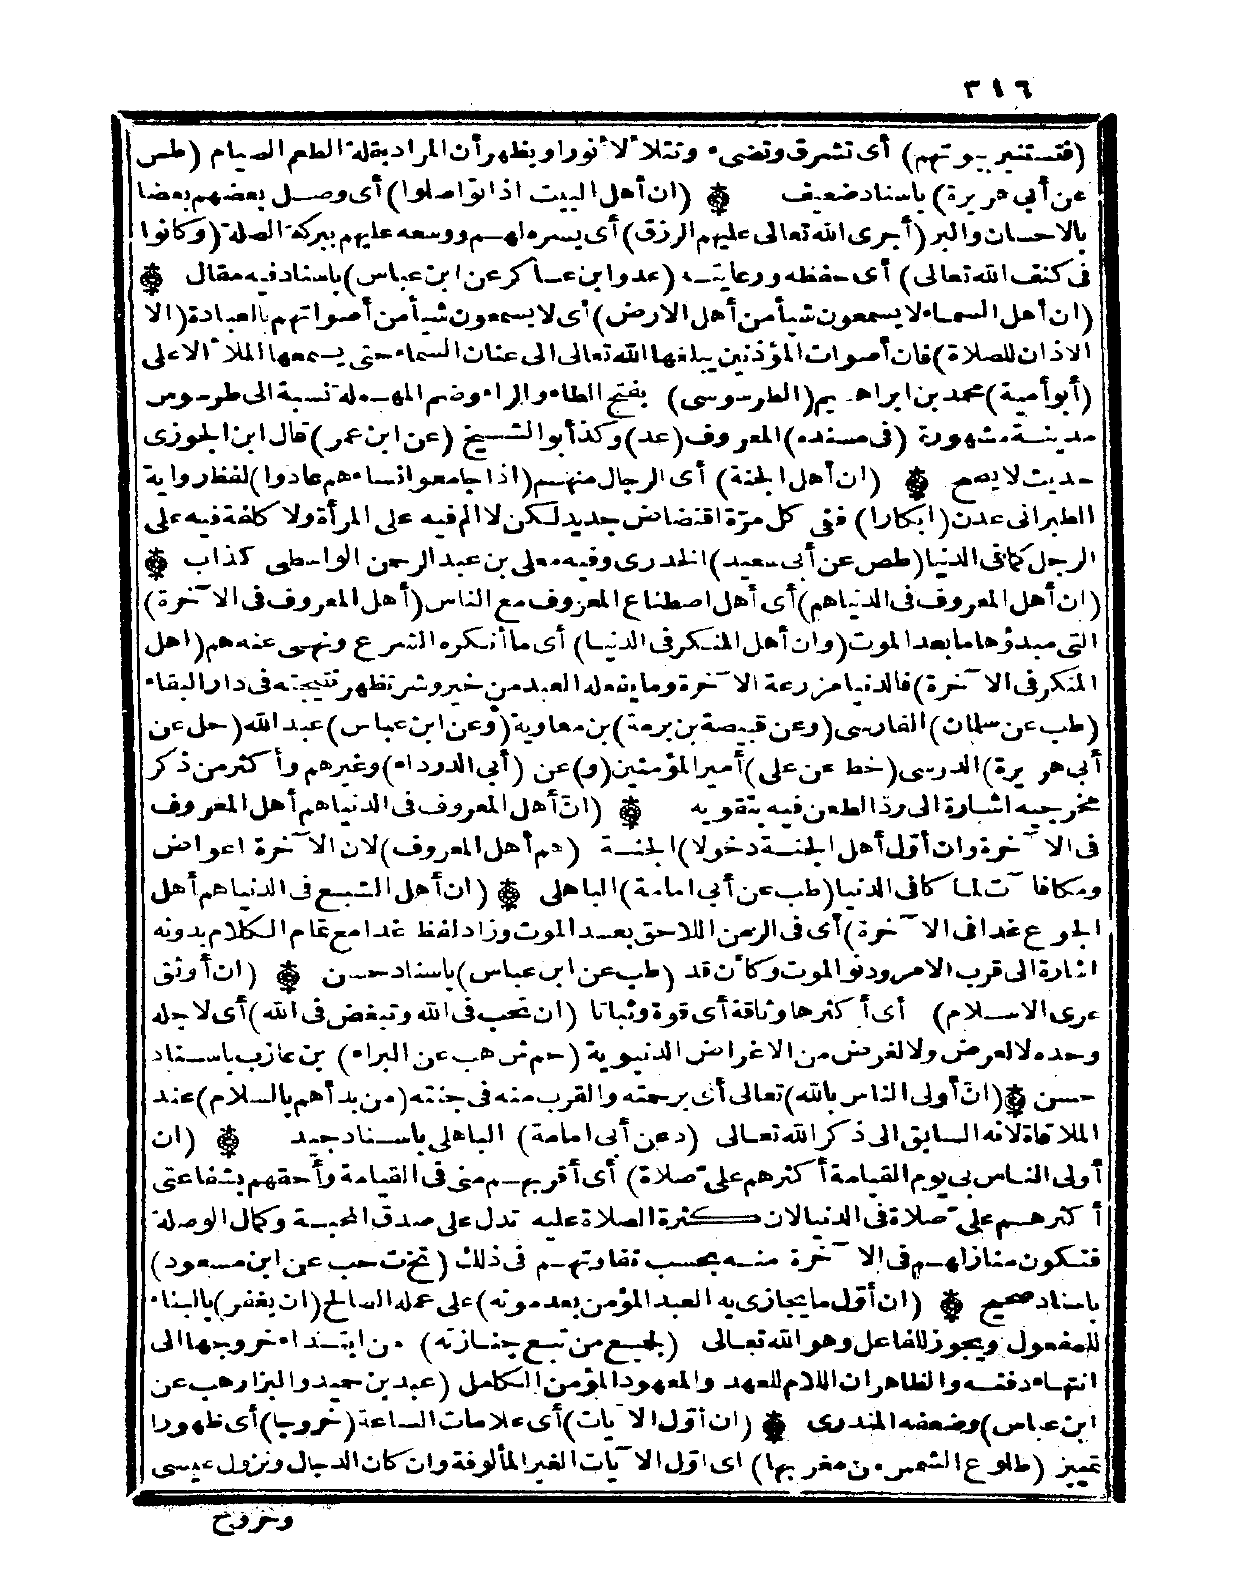 ٣١٦
(فتستنير بيوتهم) أى تشرق وتضىء وتتلألأ نورا ويظهر أن المراد بقلة الطعم الصيام (طس
عن أبى هريرة) باسناد ضعيف (ان أهل البيت اذا تواصلوا) أى وصل بعضهم بعضا
بالاحسان والبر (أجرى الله تعالى عليهم الرزق) أى يسره لهم ووسعه عليهم ببركة الصلة (وكانوا
فى كنف الله تعالى) أى حفظه ورعايته (عد وابن عساكر عن ابن عباس) باسناد فيه مقال
(ان أهل السماء لا يسمعون شيأ من أهل الارض) أى لا يسمعون شيأ من أصواتهم بالعبادة (الا
الاذان للصلاة) فان أصوات المؤذنين يبلغها الله تعالى الى عنان السماء حتى يسمعها الملأ الاعلى
(أبو أمية) محمد بن ابراهيم (الطرسوسى) بفتح الطاء والراء وضم المهملة نسبة الى طرسوس
مدينة مشهورة (فى مسنده) المعروف (عد) وكذا أبو الشيخ (عن ابن عمر) قال ابن الجوزى
حديث لا يصح (ان أهل الجنة) أى الرجال منهم (اذا جامعوا نساءهم عادوا) لفظ رواية
الطبرانى عدن (ابكارا) ففى كل مرة اقتضاض جديد لكن لا ألم فيه على المرأة ولا كلفة فيه على
الرجل كما فى الدنيا (طص عن أبى سعيد) الخدرى وفيه معلى بن عبد الرحمن الواسطى كذاب
(ان أهل المعروف فى الدنيا هم) أى أهل اصطناع المعروف مع الناس (أهل المعروف فى الآخرة)
التى مبدؤها ما بعد الموت (وان أهل المنكر فى الدنيا) أى ما أنكره الشرع ونهى عنه هم (اهل
المنكر فى الآخرة) فالدنيا مزرعة الآخرة وما يفعله العبد من خير وشر تظهر نتيجته فى دار البقاء
(طب عن سلمان) الفارسى (وعن قبيصة بن برمة) بن معاوية (وعن ابن عباس) عبد الله (حل عن
أبى هريرة) الدوسى (خط عن على) أمير المؤمنين (و) عن (أبى الدرداء) وغيرهم وأكثر من ذكر
مخرجيه اشارة الى رد الطعن فيه بتقويه (ان أهل المعروف فى الدنيا هم أهل المعروف
فى الآخرة وان أول أهل الجنة دخولا) الجنة (هم أهل المعروف) لان الآخرة اعواض
ومكافآت لما كان فى الدنيا (طب عن أبى امامة) الباهلى (ان أهل الشبع فى الدنيا هم أهل
الجوع غدا فى الآخرة) أى فى الزمن اللاحق بعد الموت وزاد لفظ غدا مع تمام الكلام بدونه
اشارة الى قرب الامر ودنو الموت وكأن قد (طب عن ابن عباس) باسناد حسن (ان أوثق
عرى الاسلام) أى أكثرها وثاقة أى قوة وثباتا (ان تحب فى الله وتبغض فى الله) أى لاجله
وحده لا لعرض ولا لغرض من الاغراض الدنيوية (حم ش هب عن البراء) بن عازب باسناد
حسن (ان أولى الناس بالله) تعالى أى برحمته والقرب منه فى جنته (من بدأهم بالسلام) عند
الملاقاة لانه السابق الى ذكر الله تعالى (د عن أبى امامة) الباهلى باسناد جيد (ان
أولى الناس بى يوم القيامة أكثرهم على صلاة) أى أقربهم منى فى القيامة وأحقهم بشفاعتى
أكثرهم على صلاة فى الدنيا لان كثرة الصلاة عليه تدل على صدق المحبة وكمال الوصلة
فتكون منازلهم فى الآخرة منه بحسب تفاوتهم فى ذلك (تخ ت حب عن ابن مسعود)
باسناد صحيح (ان أول ما يجازى به العبد المؤمن بعد موته) على عمله الصالح (ان يغفر) بالبناء
للمفعول ويجوز للفاعل وهو الله تعالى (لجميع من تبع جنازته) من ابتداء خروجها الى
انتهاء دفنه والظاهر ان اللام للعهد والمعهود المؤمن الكامل (عبد بن حميد والبزار هب عن
ابن عباس) وضعفه المنذرى (ان أول الآيات) أى علامات الساعة (خروجا) أى ظهورا
تمييز (طلوع الشمس من مغربها) اى اول الآيات الغير المألوفة وان كان الدجال ونزول عيسى
وخروج